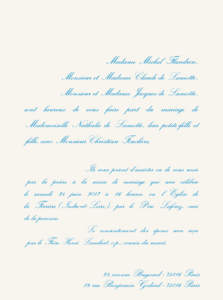 Madame Michel Flandrin,
Monsieur et Madame Claude de Lamotte,
Monsieur et Madame Jacques de Lamotte,
sont heureux de vous faire part du mariage de
Mademoiselle Nathalie de Lamotte, leur petite-fille et
fille, avec Monsieur Christian
Ils vous prient d'assister ou de vous unir
par la prière à la messe de mariage qui sera célébrée
le samedi 24 juin 2017 à 16 heures, en l'Eglise de
la (Indre-et-Loire), par le Père curé
de la paroisse.
Le consentement des époux sera reçu
par le Henri o.p., cousin du marié.
avenue 75016 Paris
18 rue Benjamin Godard - 75116 Paris